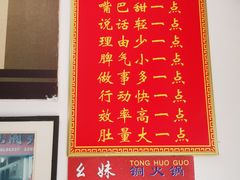 嘴巴甜一点
说话轻一点
理由少一点
脾气小一点
做事多一点
行动快一点
效率高一点
肚量大一点
幺妹 TONG HUO GUO
铜火锅